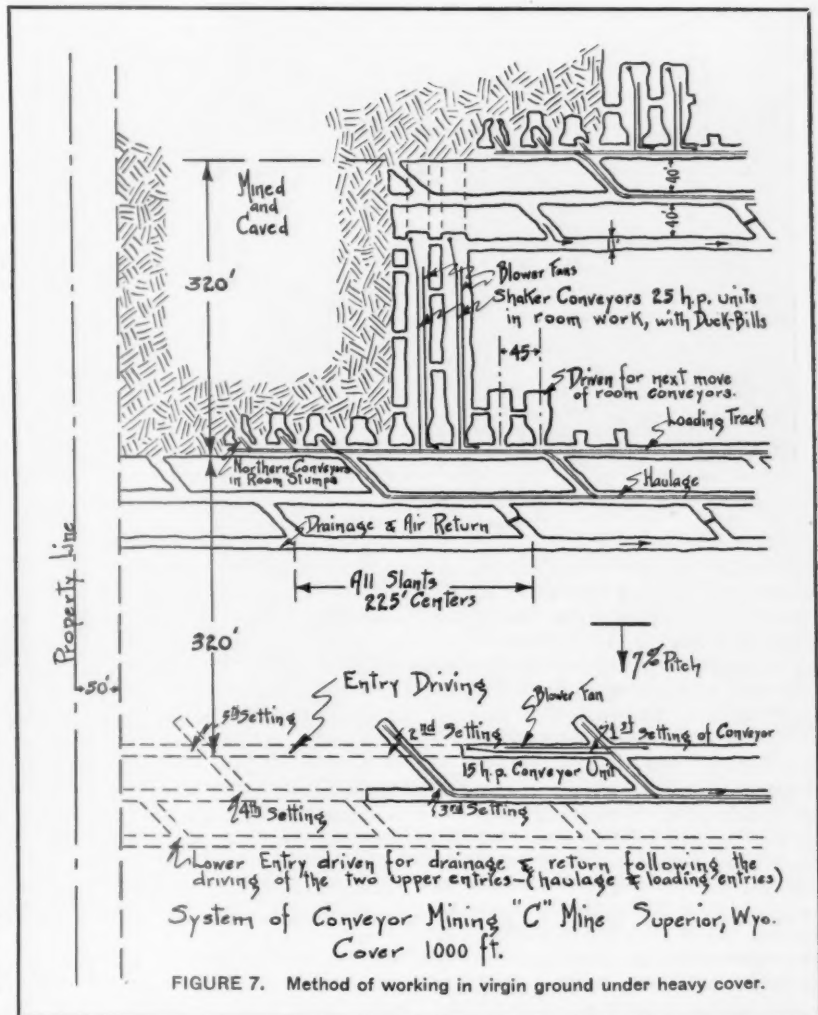 Mined
and
Caved
320'
40'
40'
11'
Blower Fans
Shaker Conveyors 25 h.p. units
in room work, with Duck-Bills
45'
Driven for next move
of room conveyors.
Loading Track
Northern Conveyors
in Room Stumps
Haulage
Drainage & Air Return
Property Line
All Slants
225' Centers
320'
7% Pitch
50'
Entry Driving
Blower Fan
5th Setting
2nd Setting
1st Setting of Conveyor
15 h.p. Conveyor Unit
4th Setting
3rd Setting
Lower Entry driven for drainage & return following the
driving of the two upper entries-(haulage & loading entries)
System of Conveyor Mining "C" Mine Superior, Wyo.
Cover 1000 ft.
FIGURE 7. Method of working in virgin ground under heavy cover.